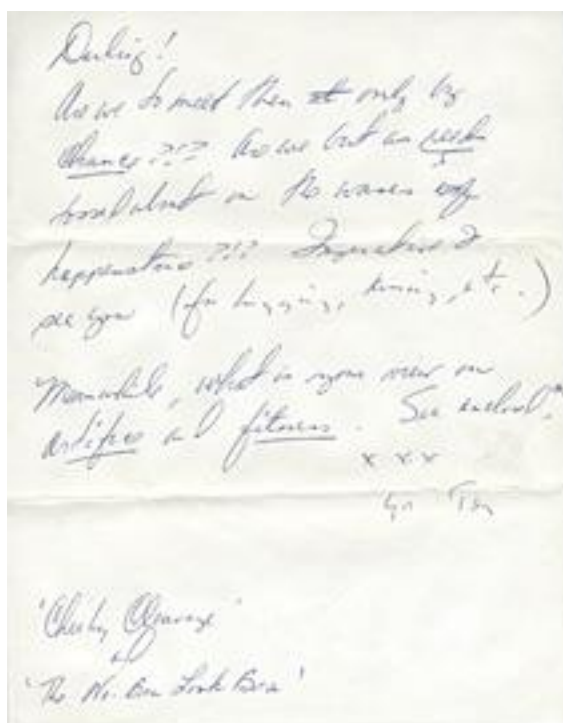 Darling!
Are we to meet then only by
Chance??? Are we but as reeds
tossed about on the waves of
happenstance??? Imperative I
see you (for hugging, kissing, etc.)
Meanwhile, what is your view on
artifice and fitness. See enclosed.
x x x
Yr
'Cheeky Cleavage'
and
'The No-Bra Look Bra'